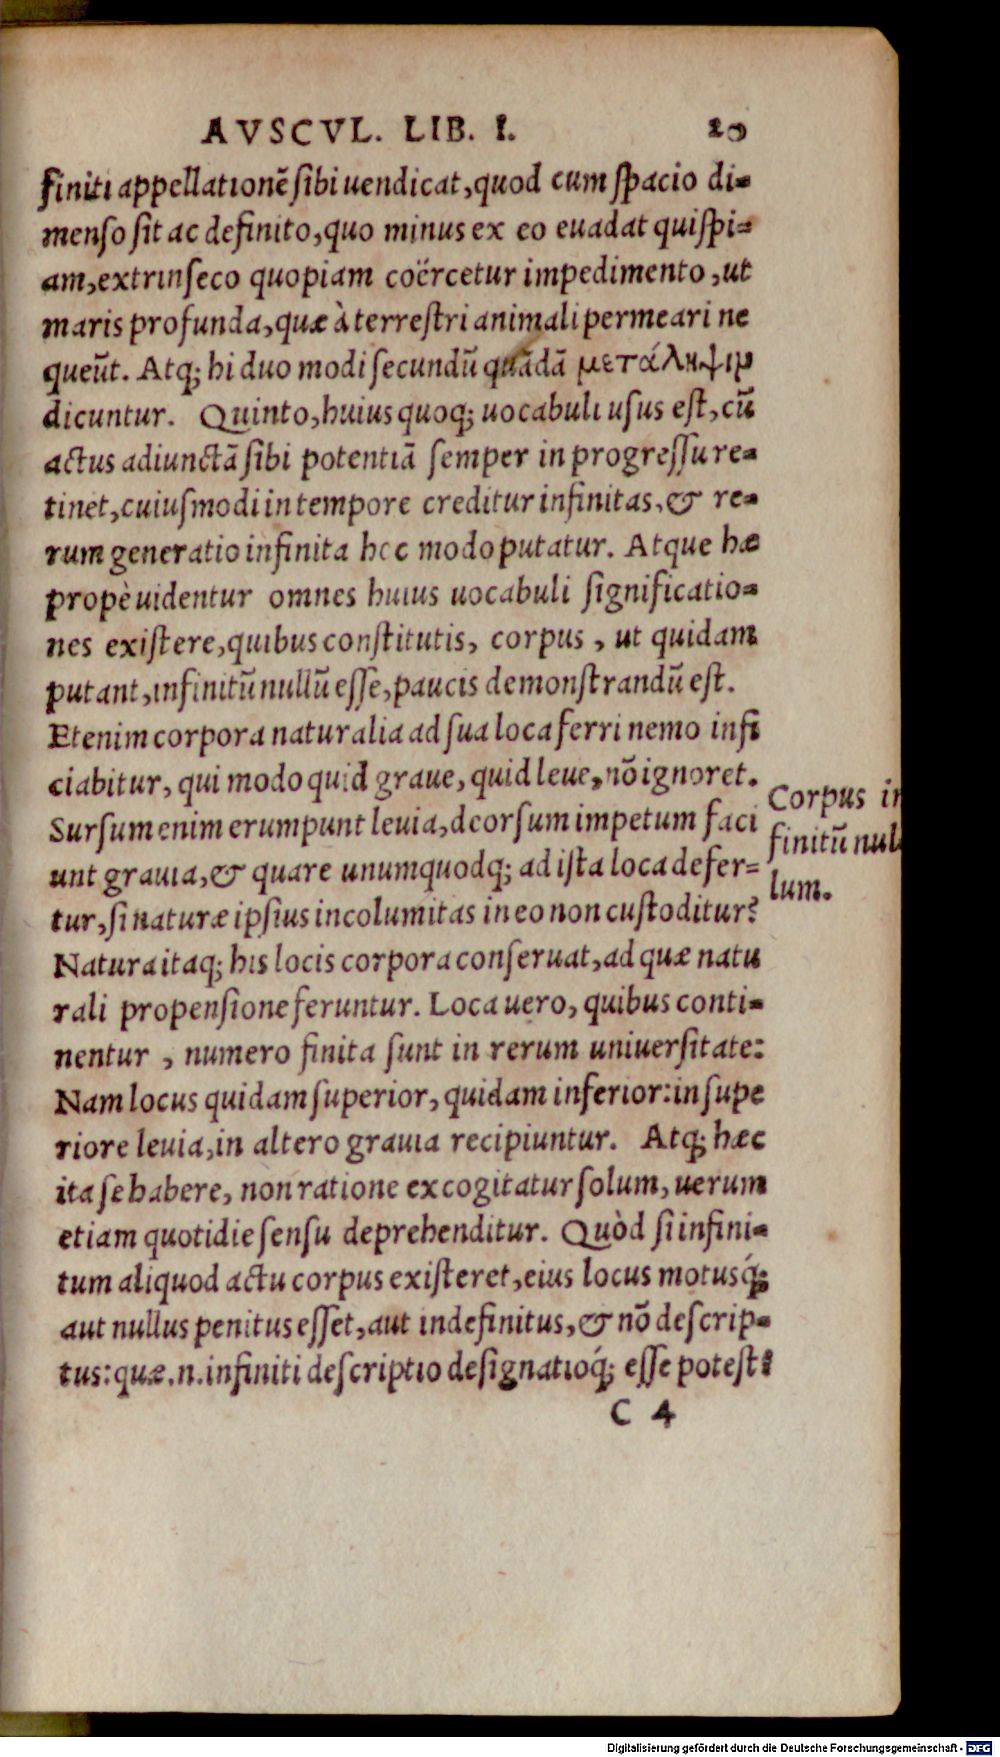 AVSCVL. LIB. I. 20
finiti appellationē sibi uendicat, quod cum spacio di-
menso sit ac definito, quo minus ex eo euadat quispi-
am, extrinseco quopiam coërcetur impedimento, ut
maris profunda, quæ à terrestri animali permeari ne
queūt. Atq; hi duo modi secundū quādā μετάληψιν
dicuntur. Quinto, huius quoq; uocabuli usus est, cū
actus adiunctā sibi potentiā semper in progressu re-
tinet, cuiusmodi in tempore creditur infinitas, & re-
rum generatio infinita hoc modo putatur. Atque hæ
propè uidentur omnes huius uocabuli significatio-
nes existere, quibus constitutis, corpus, ut quidam
putant, infinitū nullū esse, paucis demonstrandū est.
Etenim corpora naturalia ad sua loca ferri nemo infi
ciabitur, qui modo quid graue, quid leue, nō ignoret.
Sursum enim erumpunt leuia, deorsum impetum faci
unt grauia, & quare unumquodq; ad ista loca defer-
tur, si naturæ ipsius incolumitas in eo non custoditur?
Natura itaq; his locis corpora conseruat, ad quæ natu
rali propensione feruntur. Loca uero, quibus conti-
nentur, numero finita sunt in rerum uniuersitate:
Nam locus quidam superior, quidam inferior: in supe
riore leuia, in altero grauia recipiuntur. Atq; hæc
ita se habere, non ratione excogitatur solum, uerum
etiam quotidie sensu deprehenditur. Quòd si infini-
tum aliquod actu corpus existeret, eius locus motusq́;
aut nullus penitus esset, aut indefinitus, & nō descrip-
tus: quæ.n. infiniti descriptio designatioq́; esse potest?
C 4
Corpus in
finitū nul
lum.
Digitalisierung gefördert durch die Deutsche Forschungsgemeinschaft - DFG